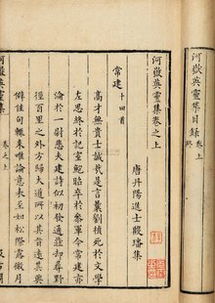 河嶽英靈集目録 卷上
終
河嶽英靈集卷之上
唐丹陽進士殷璠集
常建 十四首
高才無貴士誠哉是言曩劉楨死於文學
左思終於記室鮑昭卒於參軍今常建亦
淪於一尉悲夫建詩似初發通莊却尋野
徑百里之外方歸大道所以其旨遠其興
僻佳句輙來唯論意表至如松際露微月
卷之上